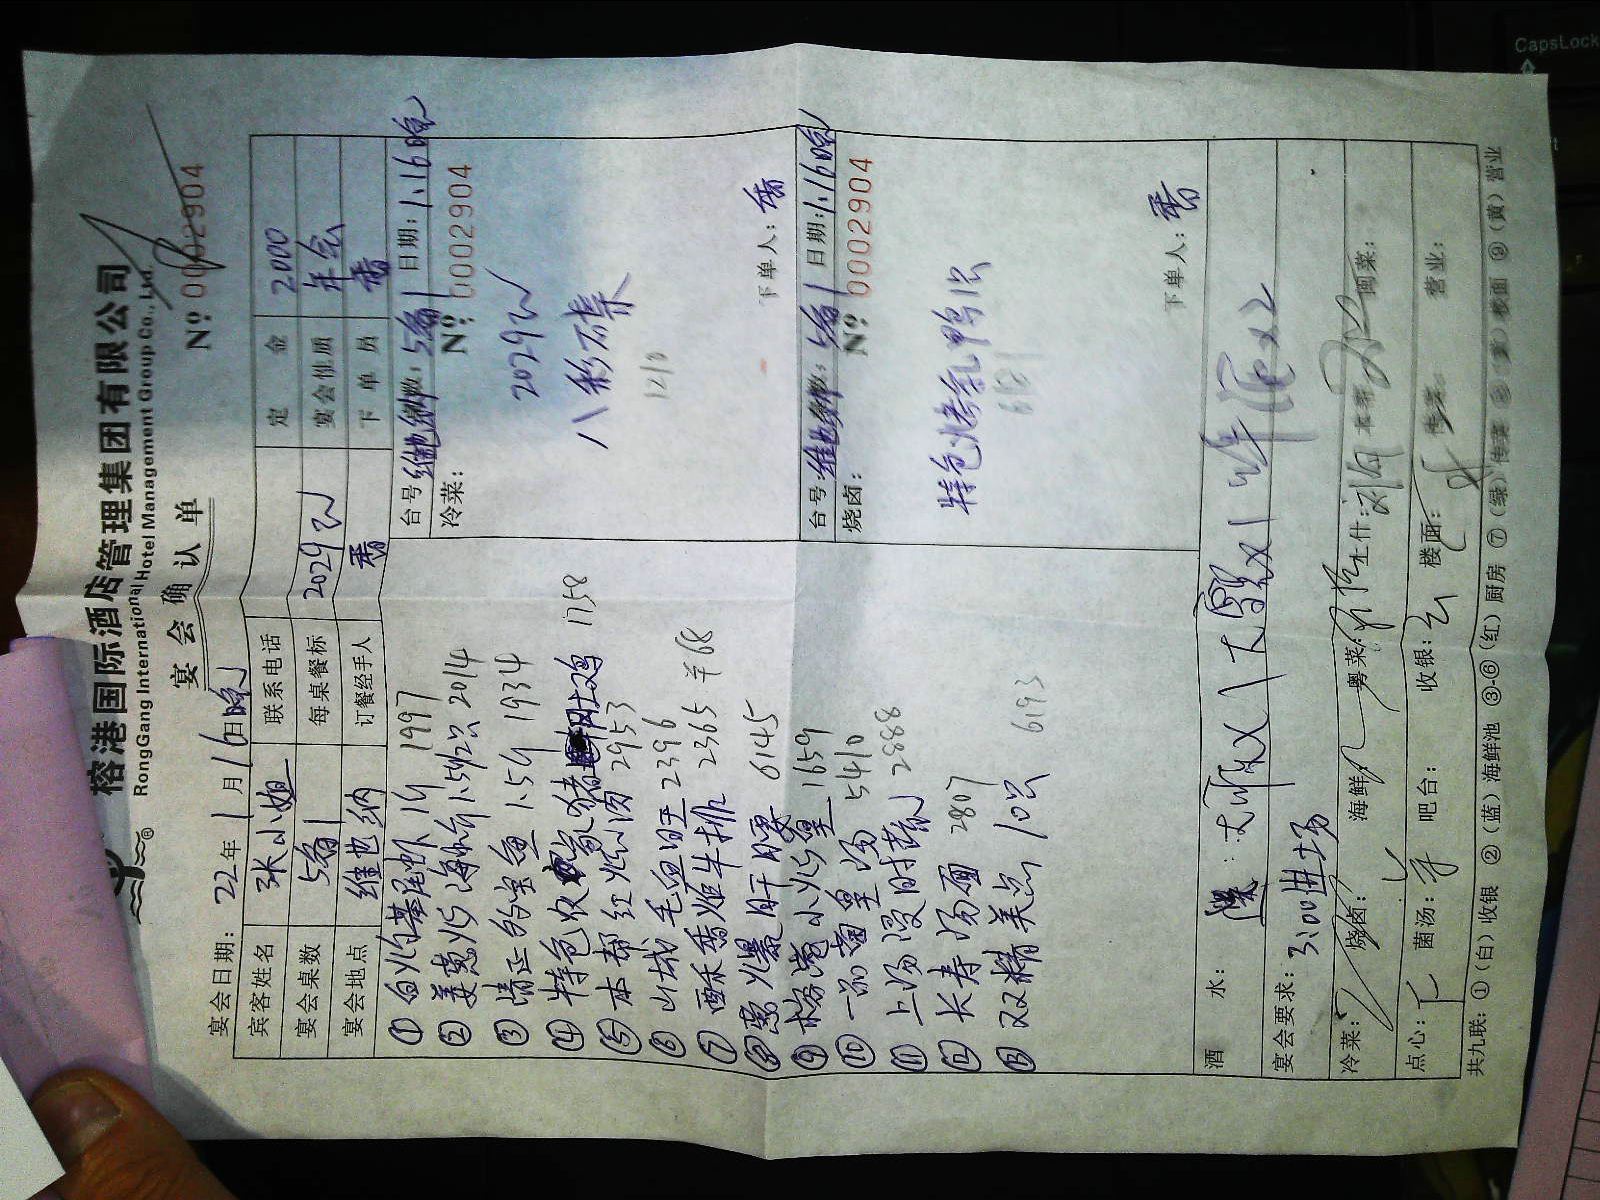 榕港国际酒店管理集团有限公司
RongGang International Hotel Management Group Co., Ltd.
宴会确认单
№ 0002904
宴会日期: 22年1月16日晚
宾客姓名 张小姐 联系电话 定金 2000
宴会桌数 5备1 每桌餐标 2029 宴会性质 年会
宴会地点 维也纳 订餐经手人 香 下单员 香
① 白灼基尾虾 1997
② 姜葱炒海 2014
③ 清正 鱼 1.5 1934
④ 特色农家 土鸡 1758
⑤ 本帮红烧肉 2953
⑥ 山城毛血旺 2396
⑦ 酥香焗牛排 2365 68
⑧ 葱爆肝腰 6145
⑨ 榕港小炒皇 1659
⑩ 一品菌皇汤 5410
⑪ 上汤浸时蔬 2888
⑫ 长寿汤面 2807
⑬ 双拼美点 10只 6193
台号: 维也纳 桌数: 5备1 日期: 1.16晚
冷菜: № 0002904
2029
八彩碟
1210
下单人: 香
台号: 维也纳 桌数: 5备1 日期: 1.16晚
烧卤: № 0002904
特色烤乳鸭1只
下单人: 香
酒水:
宴会要求: 3:00进场
冷菜: 烧卤: 海鲜: 粤菜: 上什: 本帮: 西菜:
点心: 菌汤: 吧台: 收银: 楼面: 传菜: 营业:
共九联: ①(白)收银 ②(蓝)海鲜池 ③-⑥(红)厨房 ⑦(绿)传菜 ⑧(紫)楼面 ⑨(黄)营业
CapsLock